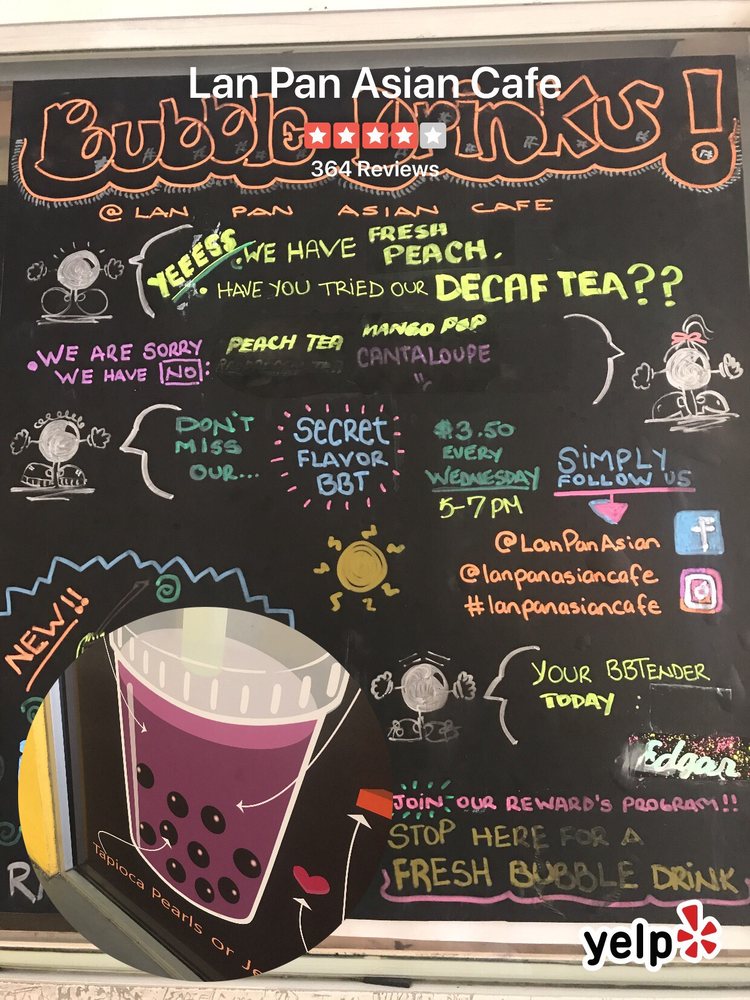 Lan Pan Asian Cafe
364 Reviews
Bubble Drinks!
@ LAN PAN ASIAN CAFE
YEEESS. WE HAVE FRESH PEACH.
• HAVE YOU TRIED OUR DECAF TEA??
• WE ARE SORRY
WE HAVE NO:
PEACH TEA
MANGO POP
CANTALOUPE
DON'T
MISS
OUR...
SECRET
FLAVOR
BBT
$3.50
EVERY
WEDNESDAY
5-7 PM
SIMPLY
FOLLOW US
@LanPanAsian
@lanpanasiancafe
#lanpanasiancafe
NEW!!
YOUR BBTENDER
TODAY :
Edgar
JOIN OUR REWARD'S PROGRAM!!
STOP HERE FOR A
FRESH BUBBLE DRINK
Tapioca Pearls Or Je
yelp